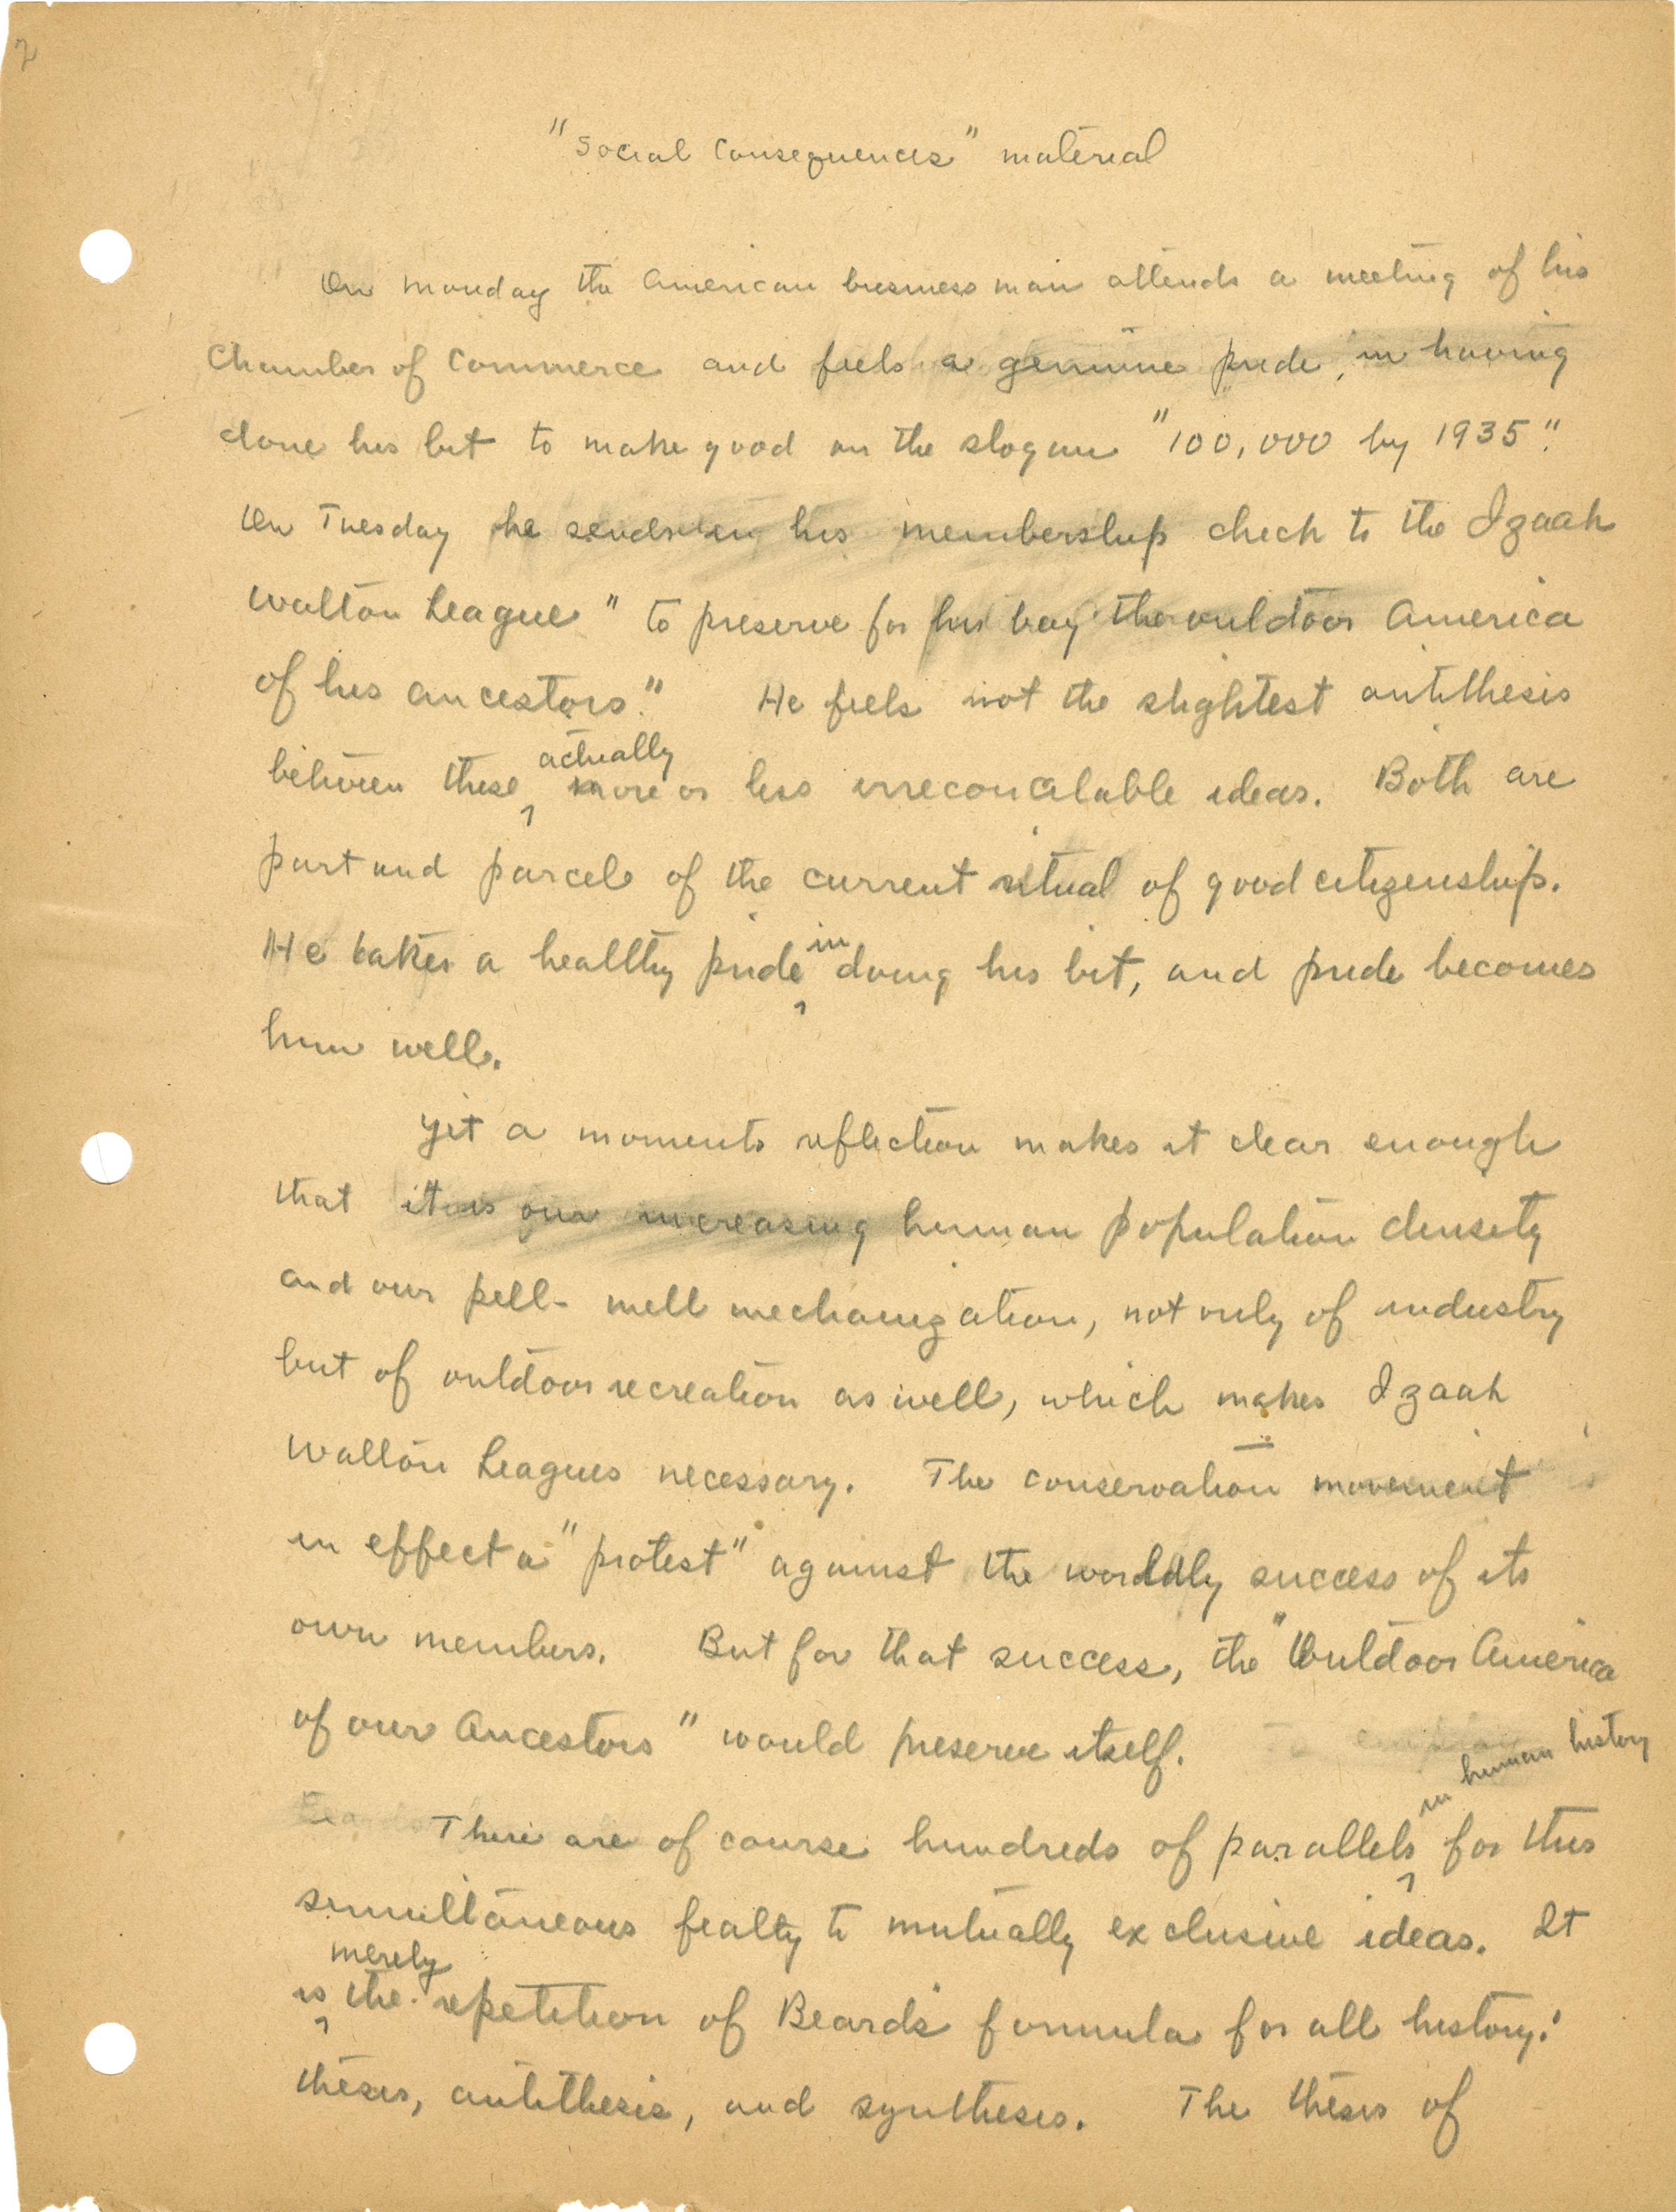 "Social Consequences" material
On Monday the American business man attends a meeting of his
Chamber of Commerce and feels a genuine pride, in having
done his bit to make good on the slogan "100,000 by 1935".
On Tuesday he sends in his membership check to the Izaak
Walton League "to preserve for his boy the outdoor America
of his ancestors." He feels not the slightest antithesis
actually
between these more or less irreconcilable ideas. Both are
part and parcel of the current ritual of good citizenship.
He takes a healthy pride in doing his bit, and pride becomes
him well.
Yet a moments reflection makes it clear enough
that it is our increasing human population density
and our pell-mell mechanization, not only of industry
but of outdoor recreation as well, which makes Izaak
Walton Leagues necessary. The conservation movement
in effect a "protest" against the worldly success of its
own members. But for that success, the "Outdoor America
of our Ancestors" would preserve itself.
in human history
There are of course hundreds of parallels for this
simultaneous fealty to mutually exclusive ideas. It
merely
is the repetition of Beards formula for all history:
thesis, antithesis, and synthesis. The thesis of